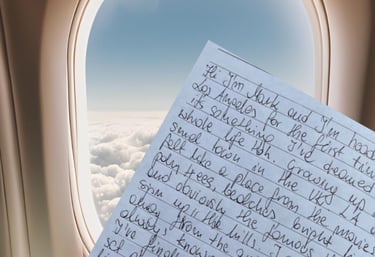 Hi I'm Mark and I'm head
Los Angeles for the first tim
it's something I've dreamed
whole life tbh. Growing up
small town in the UK, LA
felt like a place from the movies
palm trees, beaches, bright li
and obviously the famous
sign up the hills. I
away from the
always know
I've fina
set of